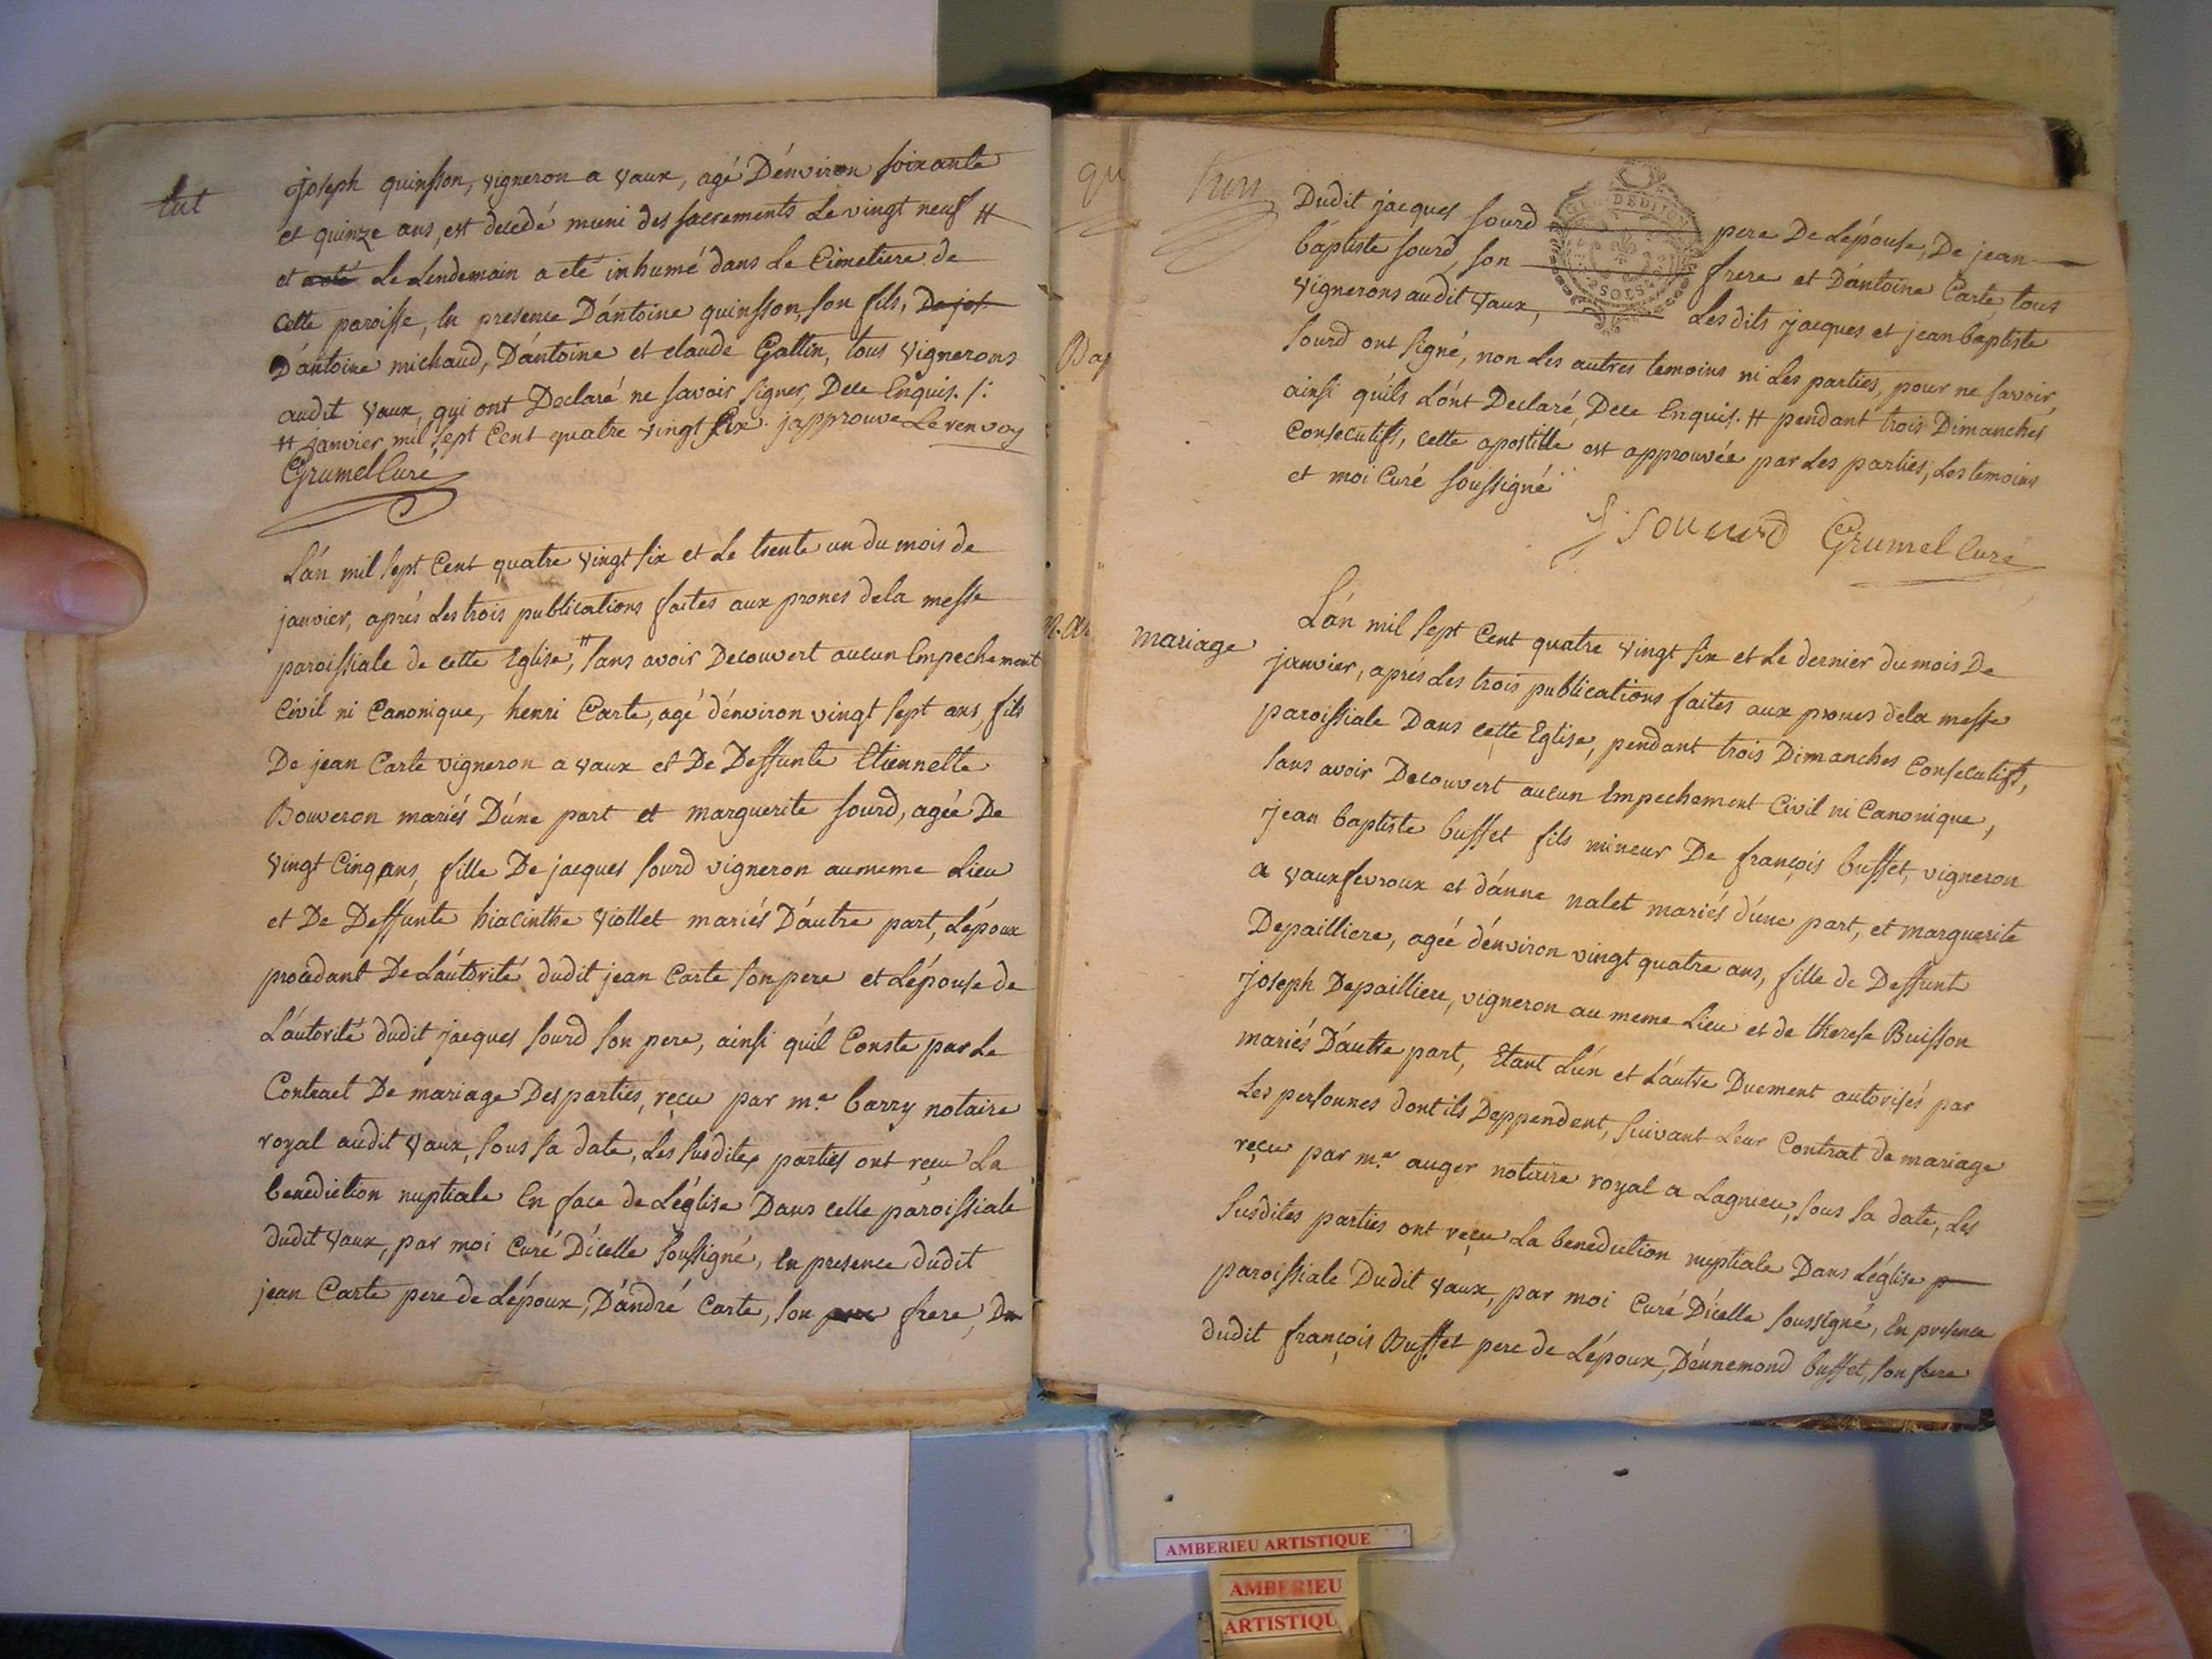 joseph quinsson, vigneron a vaux, agé D'énviron soixante
et quinze ans, est decedé muni des sacrements Le vingt neuf #
et a eté Le Lendemain a eté inhumé dans Le Cimetiere de
cette paroisse, En presence D'ántoine quinsson, son fils, De jos
D'ántoine michaud, D'ántoine et claude Gallin, tous vignerons
audit vaux, qui ont Declaré ne savoir signer, Dece Enquis. /:
# janvier mil sept Cent quatre vingt six. japprouve Le renvoy
Grumel Curé
L'án mil sept Cent quatre vingt six et Le trente un du mois de
janvier, aprés Les trois publications faites aux prones dela messe
paroissiale de cette Eglise, # sans avoir Decouvert aucun Empechement
Civil ni Canonique, henri Carte, agé d'énviron vingt sept ans, fils
De jean Carte vigneron a vaux et De Deffunte Etiennette
Bouveron mariés D'úne part et marguerite sourd, agée De
vingt Cinq ans, fille De jacques sourd vigneron au meme Lieu
et De Deffunte hiacinthe viollet mariés D'áutre part, L'époux
procedant De L'áutorité dudit jean Carte son pere et L'épouse de
L'áutorité dudit jacques sourd son pere, ainsi qu'il Conste par Le
Contract De mariage Des parties, reçu par m.e barry notaire
royal audit vaux, sous sa date, Les susdites parties ont reçu La
benediction nuptiale En face de L'église Dans celle paroissiale
dudit vaux, par moi Curé D'icelle soussigné, En presence dudit
jean Carte pere de L'époux, D'ándré Carte, son frere, Du
Dudit jacques sourd pere De L'épouse, De jean
baptiste sourd, son frere et D'ántoine Carte, tous
vignerons audit vaux, Les dits jacques et jean baptiste
sourd ont signé, non Les autres temoins ni Les parties, pour ne savoir,
ainsi qu'ils L'ónt Declaré, Dece Enquis. # pendant trois Dimanches
Consecutifs, cette apostille est approuvée par Les parties, Les temoins
et moi Curé soussigné
Grumel Curé
mariage
L'án mil sept Cent quatre vingt six et Le dernier du mois De
janvier, aprés Les trois publications faites aux prones dela messe
paroissiale Dans cette Eglise, pendant trois Dimanches Consecutifs,
sans avoir Decouvert aucun Empechement Civil ni Canonique,
jean baptiste buffet fils mineur De françois buffet, vigneron
a vauxfevroux et d'ánne nalet mariés d'úne part, et marguerite
Depailliere, agée d'énviron vingt quatre ans, fille de Deffunt
joseph Depailliere, vigneron au meme Lieu et de therese Buisson
mariés D'áutre part, Etant L'ún et L'áutre Duement autorisés par
Les personnes dont ils Deppendent, suivant Leur Contrat de mariage
reçu par m.e auger notaire royal a Lagnieu, sous sa date, Les
susdites parties ont reçu La benediction nuptiale Dans L'église p
paroissiale Dudit vaux, par moi Curé D'icelle soussigné, En presence
dudit françois Buffet pere de L'époux, D'énnemond buffet, son frere
2 SOLS
AMBERIEU ARTISTIQUE
AMBERIEU
ARTISTIQU